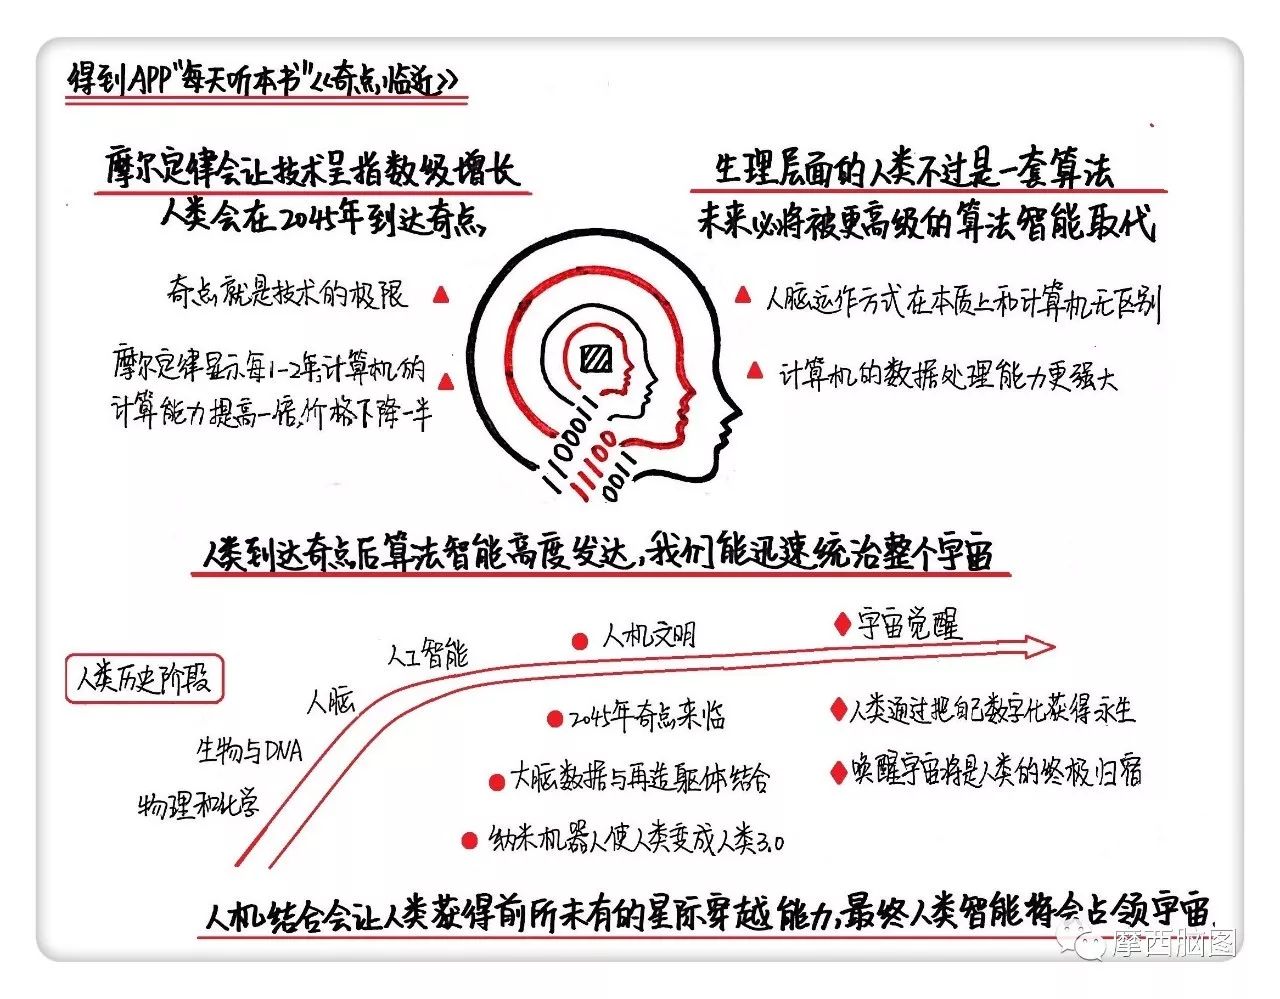 得到APP"每天听本书"《奇点临近》
摩尔定律会让技术呈指数级增长
人类会在2045年到达奇点
奇点就是技术的极限
摩尔定律显示每1-2年,计算机的
计算能力提高一倍,价格下降一半
生理层面的人类不过是一套算法
未来必将被更高级的算法智能取代
人脑运作方式在本质上和计算机无区别
计算机的数据处理能力更强大
1100011
11100
0011
人类到达奇点后算法智能高度发达,我们能迅速统治整个宇宙
人类历史阶段
物理和化学
生物与DNA
人脑
人工智能
人机文明
2045年奇点来临
大脑数据与再造躯体结合
纳米机器人使人类变成人类3.0
宇宙觉醒
人类通过把自己数字化获得永生
唤醒宇宙将是人类的终极归宿
人机结合会让人类获得前所未有的星际穿越能力,最终人类智能将会占领宇宙.
摩西脑图